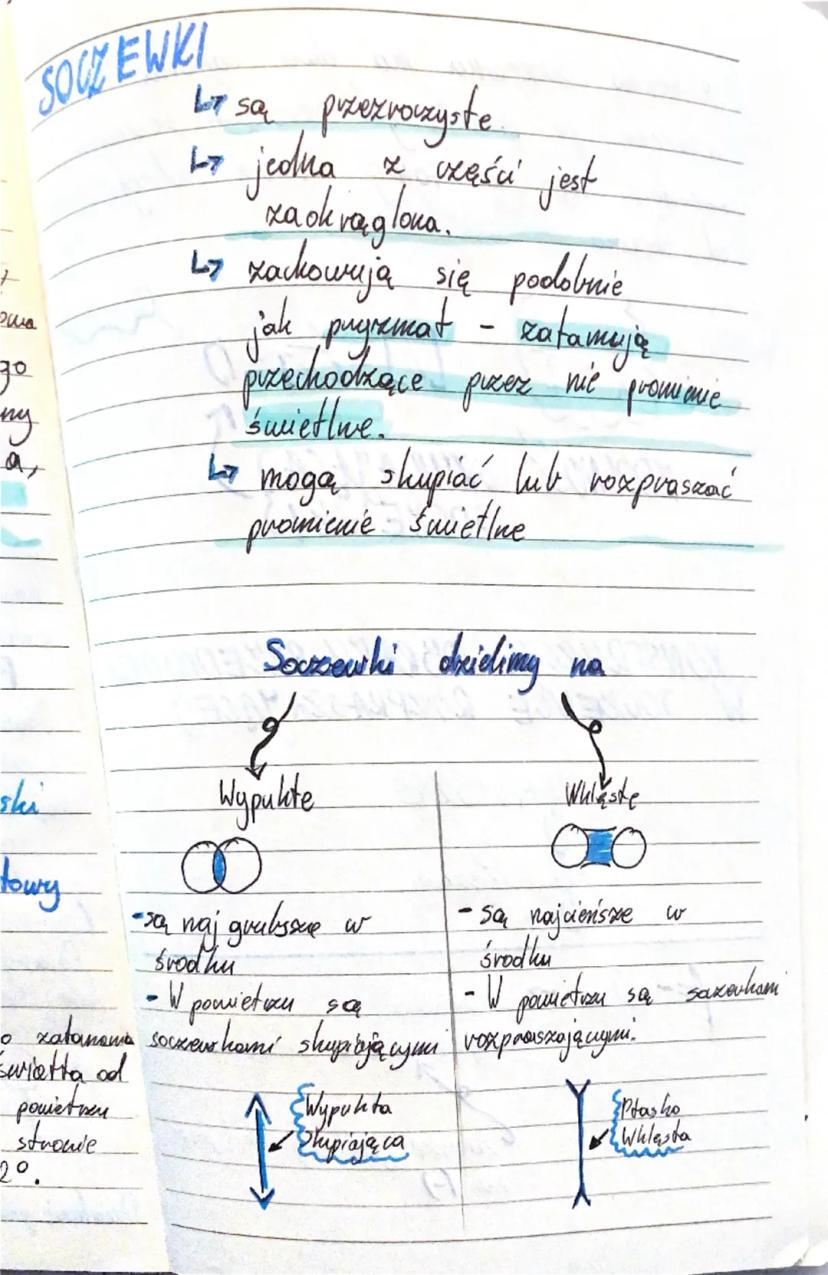 SOCZEWKI
↳ są przezroczyste
↳ jedna z części jest
zaokrąglona.
↳ zachowują się podobnie
jak pryzmat - załamują
przechodzące przez nie promienie
świetlne.
↳ mogą skupiać lub rozpraszać
promienie świetlne
Soczewki dzielimy na
Wypukłe
- są naj grubsze w
środku
- W powietrzu są
soczewkami skupiającymi
Wypukła
Skupiająca
Wklęsłe
- są najcieńsze w
środku
- W powietrzu są soczewkami
rozpraszającymi.
Płasko
Wklęsła
go
ny
a,
ski
towy
o załamania
światła od
powietrzu
stronie
2°.